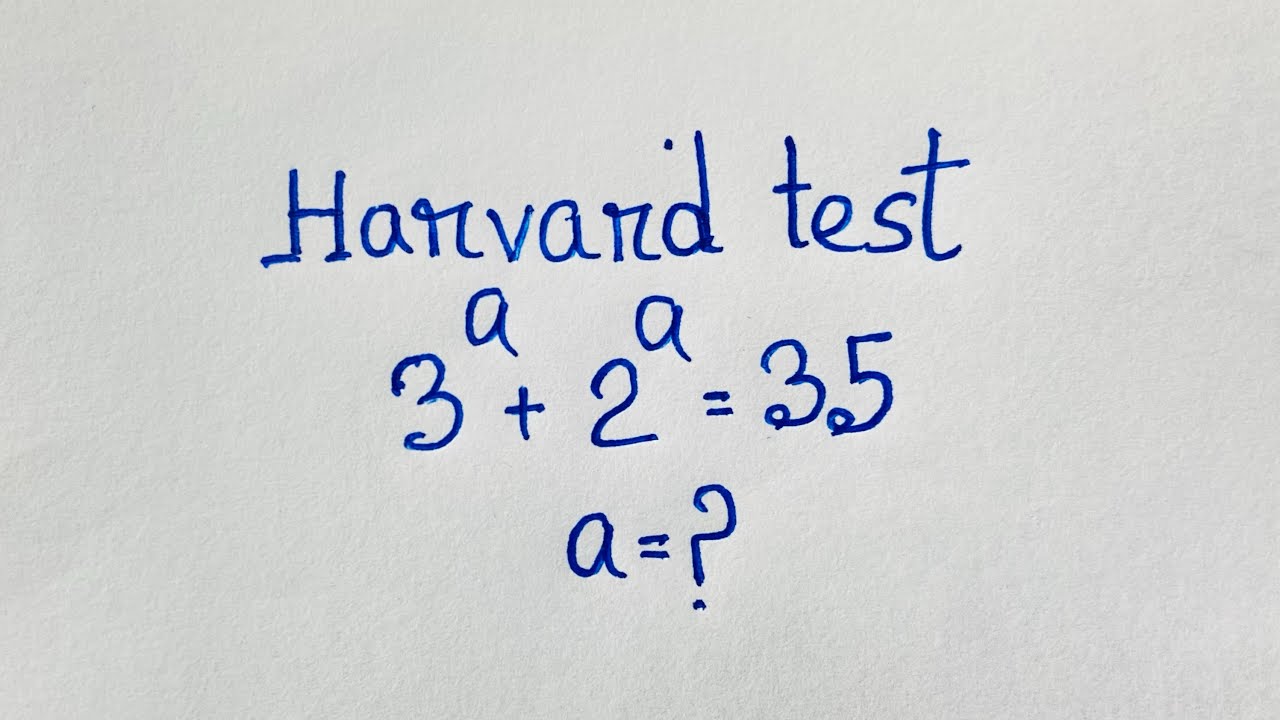 Harvard test
3ᵃ + 2ᵃ = 35
a = ?